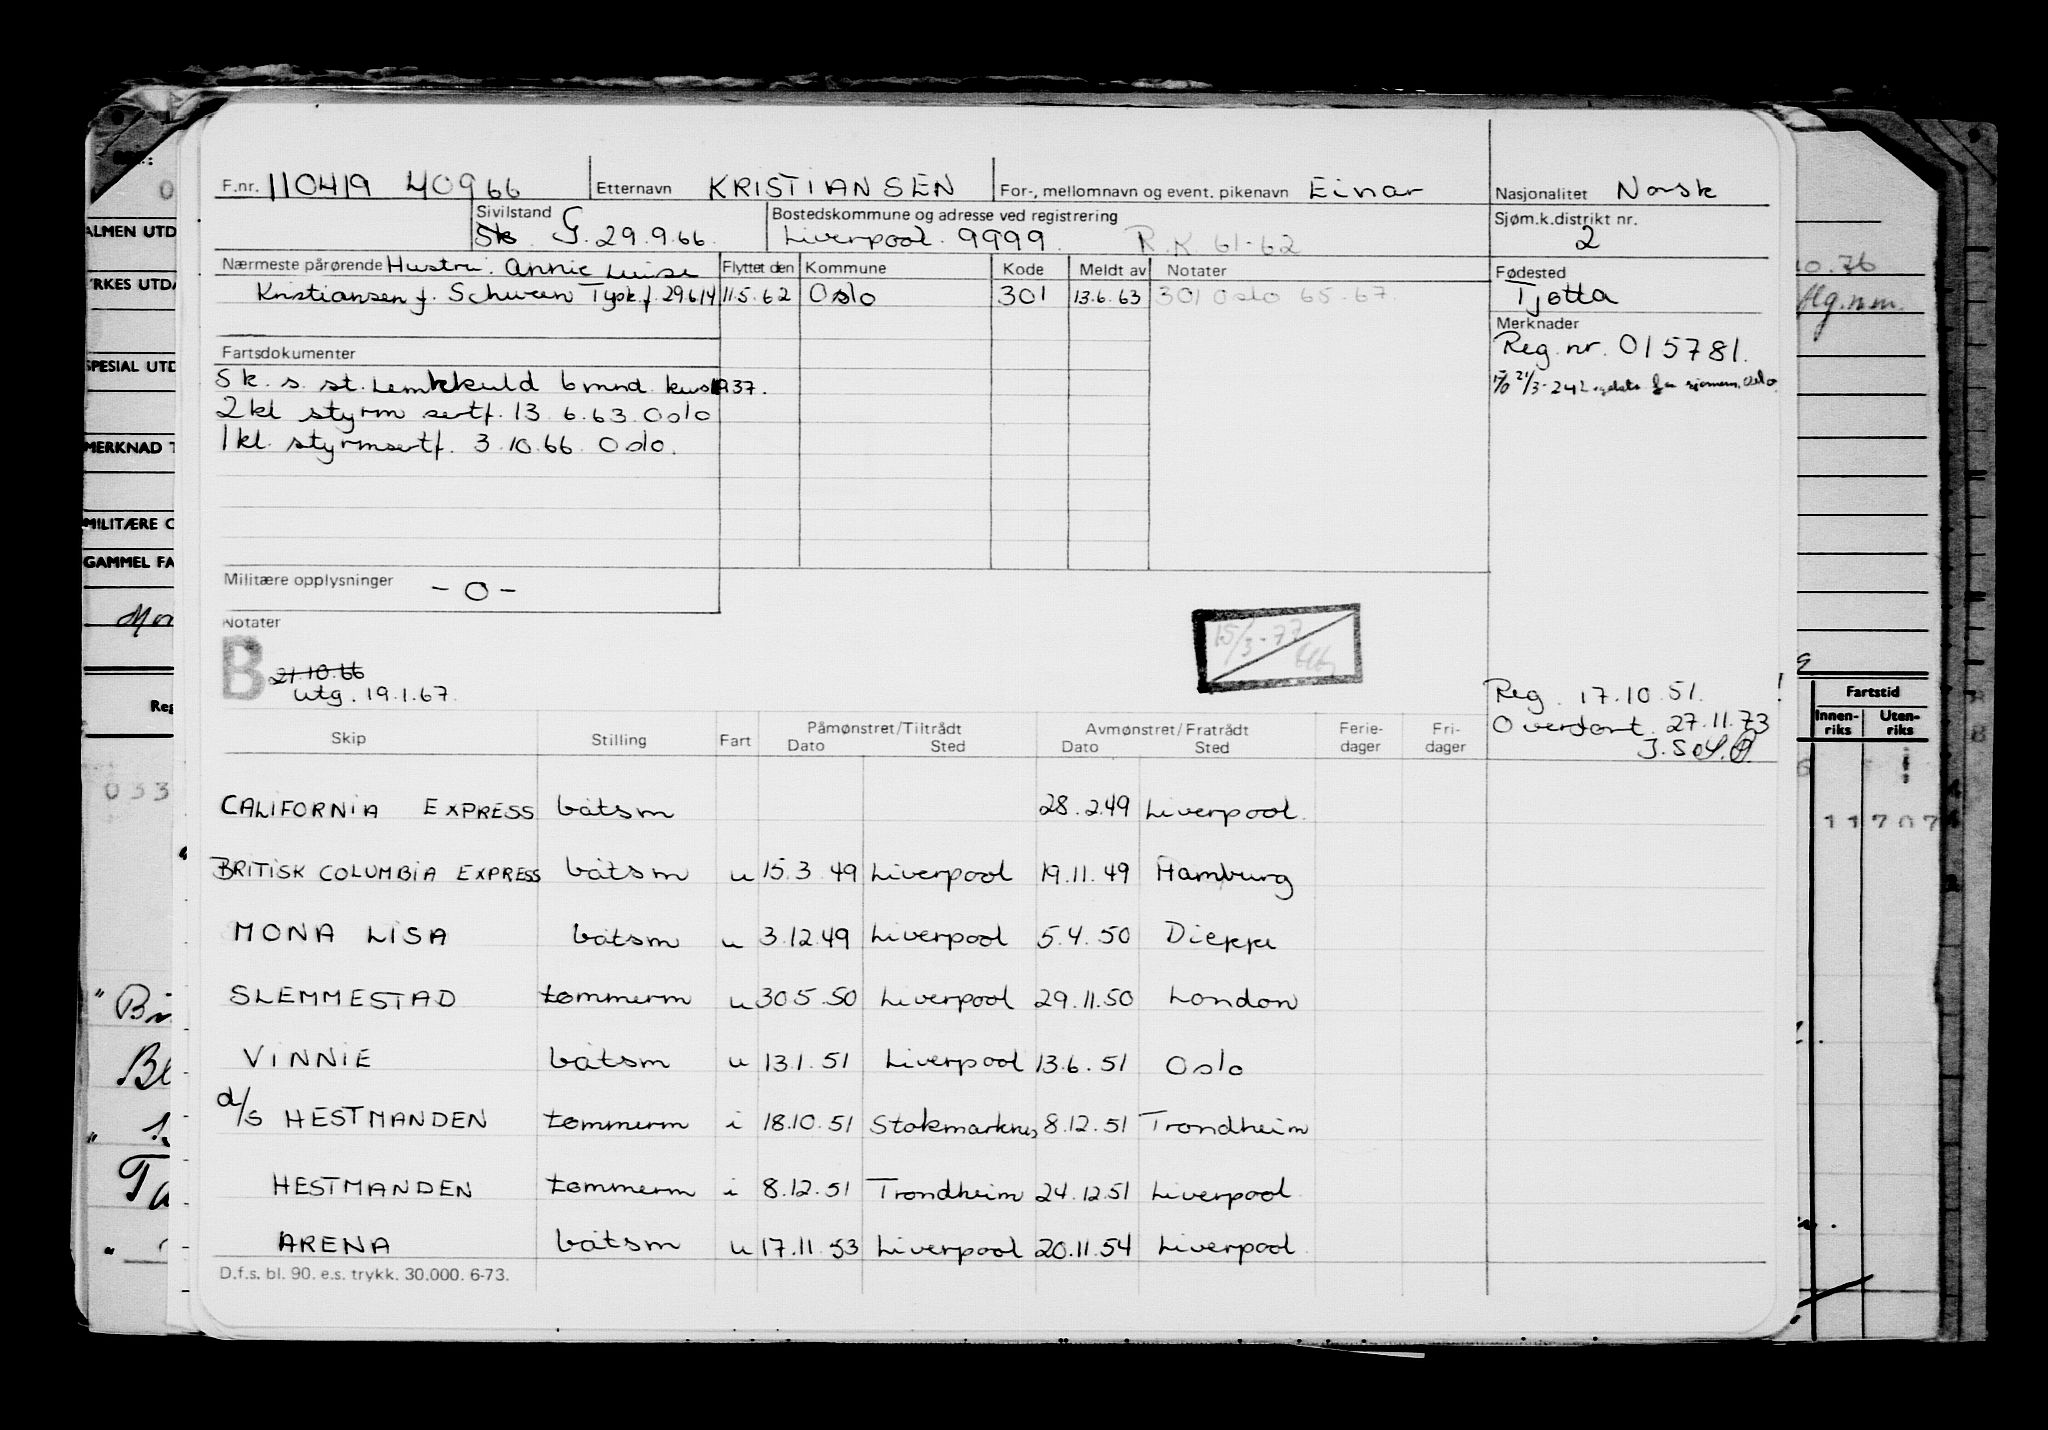 F.nr. 110419 40966 Etternavn KRISTIANSEN For-, mellomnavn og event. pikenavn Einar Nasjonalitet Norsk
Sivilstand Sk G. 29.9.66. Bostedskommune og adresse ved registrering Liverpool. 9999. R.K. 61-62 Sjøm.k.distrikt nr. 2
Nærmeste pårørende Hustru. Annie Luise Flyttet den Kommune Kode Meldt av Notater Fødested
Kristiansen f. Schween Tysk f. 29614 11.5.62 Oslo 301 13.6.63 301 Oslo 65-67. Tjøtta
Merknader
Reg. nr. 015781.
Fartsdokumenter
Sk. s. st. Lemkuld 6 mnd. kurs 1937.
2 kl styrm sertf. 13.6.63 Oslo
1 kl. styrmsertf. 3.10.66 Oslo.
Militære opplysninger - 0 -
Notater
B 21.10.66
utg. 19.1.67.
15/3-77
Reg. 17.10.51.
Overført 27.11.73
Skip Stilling Fart Påmønstret/Tiltrådt Dato Sted Avmønstret/Fratrådt Dato Sted Ferie-dager Fri-dager
CALIFORNIA EXPRESS båtsm 28.2.49 Liverpool.
BRITISK COLUMBIA EXPRESS båtsm u 15.3.49 Liverpool 19.11.49 Hamburg
MONA LISA båtsm u 3.12.49 Liverpool 5.4.50 Dieppe
SLEMMESTAD tømmerm u 30 5.50 Liverpool 29.11.50 London
VINNIE båtsm u 13.1.51 Liverpool 13.6.51 Oslo
d/s HESTMANDEN tømmerm i 18.10.51 Stokmarknes 8.12.51 Trondheim
HESTMANDEN tømmerm i 8.12.51 Trondheim 24.12.51 Liverpool
ARENA båtsm u 17.11.53 Liverpool 20.11.54 Liverpool
D.f.s. bl. 90. e.s. trykk. 30.000. 6-73.
ALMEN UTD
SPESIAL UTD
MERKNAD
MILITÆRE
GAMMEL FA
Reg
033
Fartstid
Innen-riks Uten-riks
11707